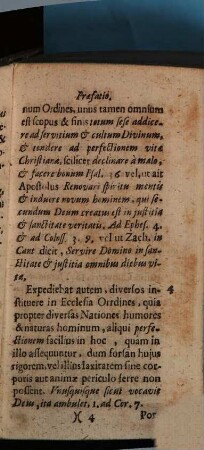 Præfatio.
num Ordines, unus tamen omnium
est scopus & finis totum sese addice-
re ad servitium & cultum Divinum,
& tendere ad perfectionem vitæ
Christianæ, scilicet declinare à malo,
& facere bonum Psal. 36. vel, ut ait
Apostolus Renovari spiritu mentis
& induere novum hominem, qui se-
cundum Deum creatus est in justitia
& sanctitate veritatis. Ad Ephes. 4.
& ad Coloss. 3. 9. vel ut Zach. in
Cant dicit, Servire Domino in san-
ctitate & justitia omnibus diebus vi-
tæ.
Expediebat autem, diversos in- 4
stituere in Ecclesia Orrdines, quia
propter diversas Nationes humores
& naturas hominum, aliqui perfe-
ctionem facilius in hoc, quam in
illo assequuntur, dum forsan hujus
rigorem, vel illius laxitatem sine cor-
poris aut animæ periculo ferre non
possent. Unusquisque sicut vocavit
Deus, ita ambulet, 1. ad Cor. 7.
)( 4 Por